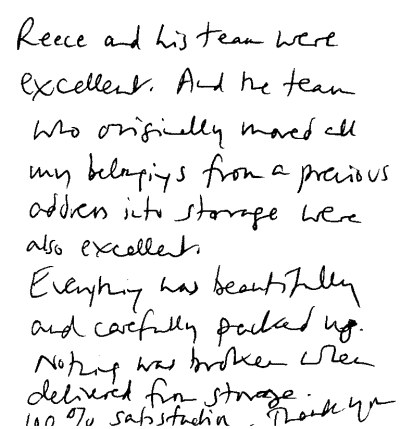 Reece and his team were
excellent. And the team
who originally moved all
my belongings from a previous
address into storage were
also excellent.
Everything was beautifully
and carefully packed up.
Nothing was broken when
delivered from storage.
100% satisfaction. Thank you